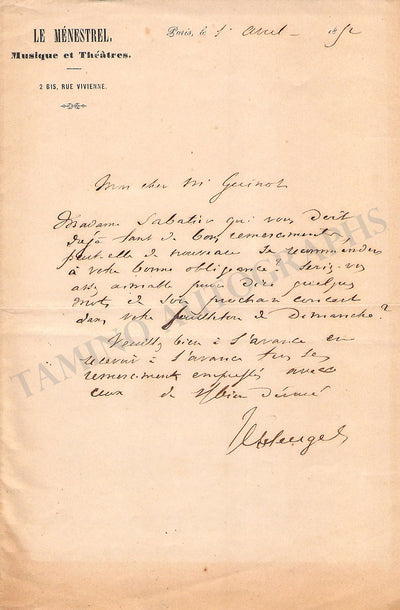 LE MÉNESTREL.
Musique et Théâtres.
2 BIS, RUE VIVIENNE.
Paris, le 1er avril 1852
Mon cher Mr Guinot
Madame Sabatier qui vous doit
déjà tant de bons remerciements
peut-elle de nouveau se recommander
à votre bonne obligeance? Seriez-vous
assez aimable pour dire quelques
mots de son prochain concert
dans votre feuilleton de Dimanche?
Veuillez bien à l'avance en
recevoir à l'avance tous ses
remerciements empressés avec
ceux de Vtre bien dévoué
Heugel
TAMINO AUTOGRAPHS